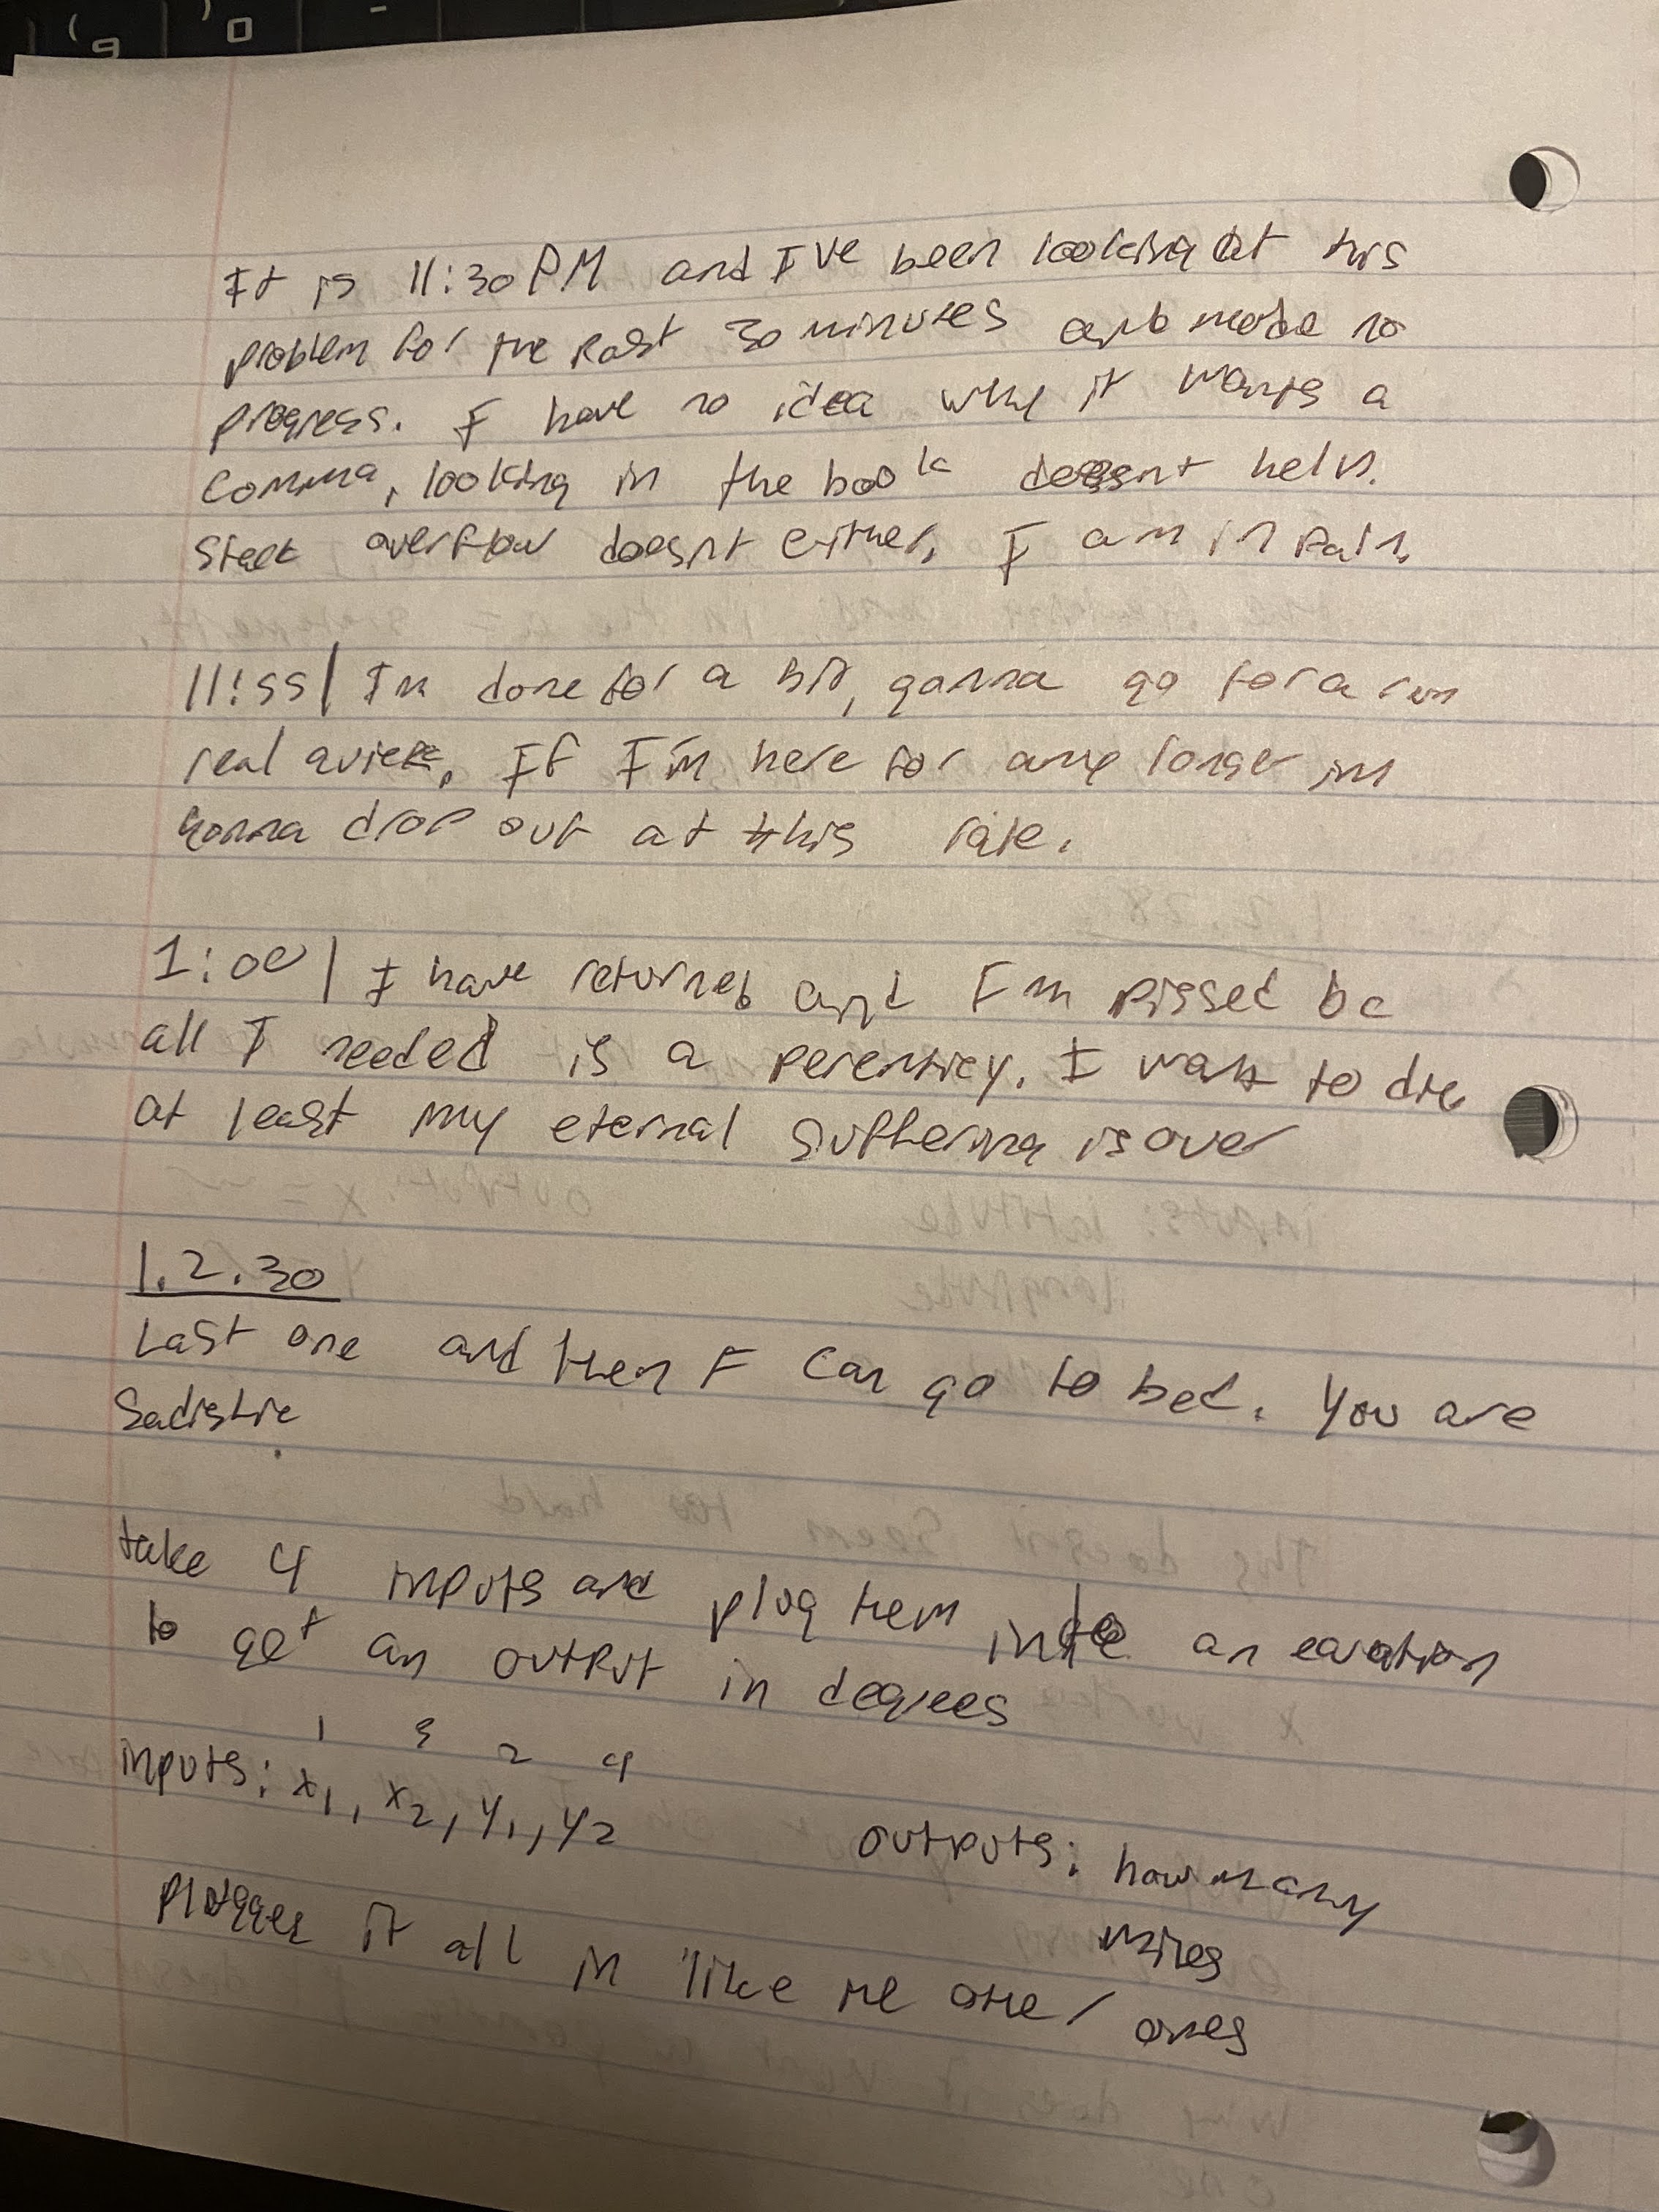 ( 9 ) 0 -
It is 11:30PM and I've been looking at this
problem for the past 30 minutes and made no
progress. I have no idea why it wants a
comma, looking in the book doesnt help.
Stack overflow doesnt either. I am in pain.
11:55| I'm done for a bit, gonna go for a run
real quick. If I'm here for any longer im
gonna drop out at this rate.
1:00| I have returned and I'm pissed bc
all I needed is a perenticy. I want to die
at least my eternal suffering is over
1.2.30
Last one and then I can go to bed. You are
Sadistic
take 4 inputs and plug them into an equation
to get an output in degrees
1 3 2 4
inputs: x1, x2, y1, y2
outputs: how many
miles
plugged it all in like the other ones